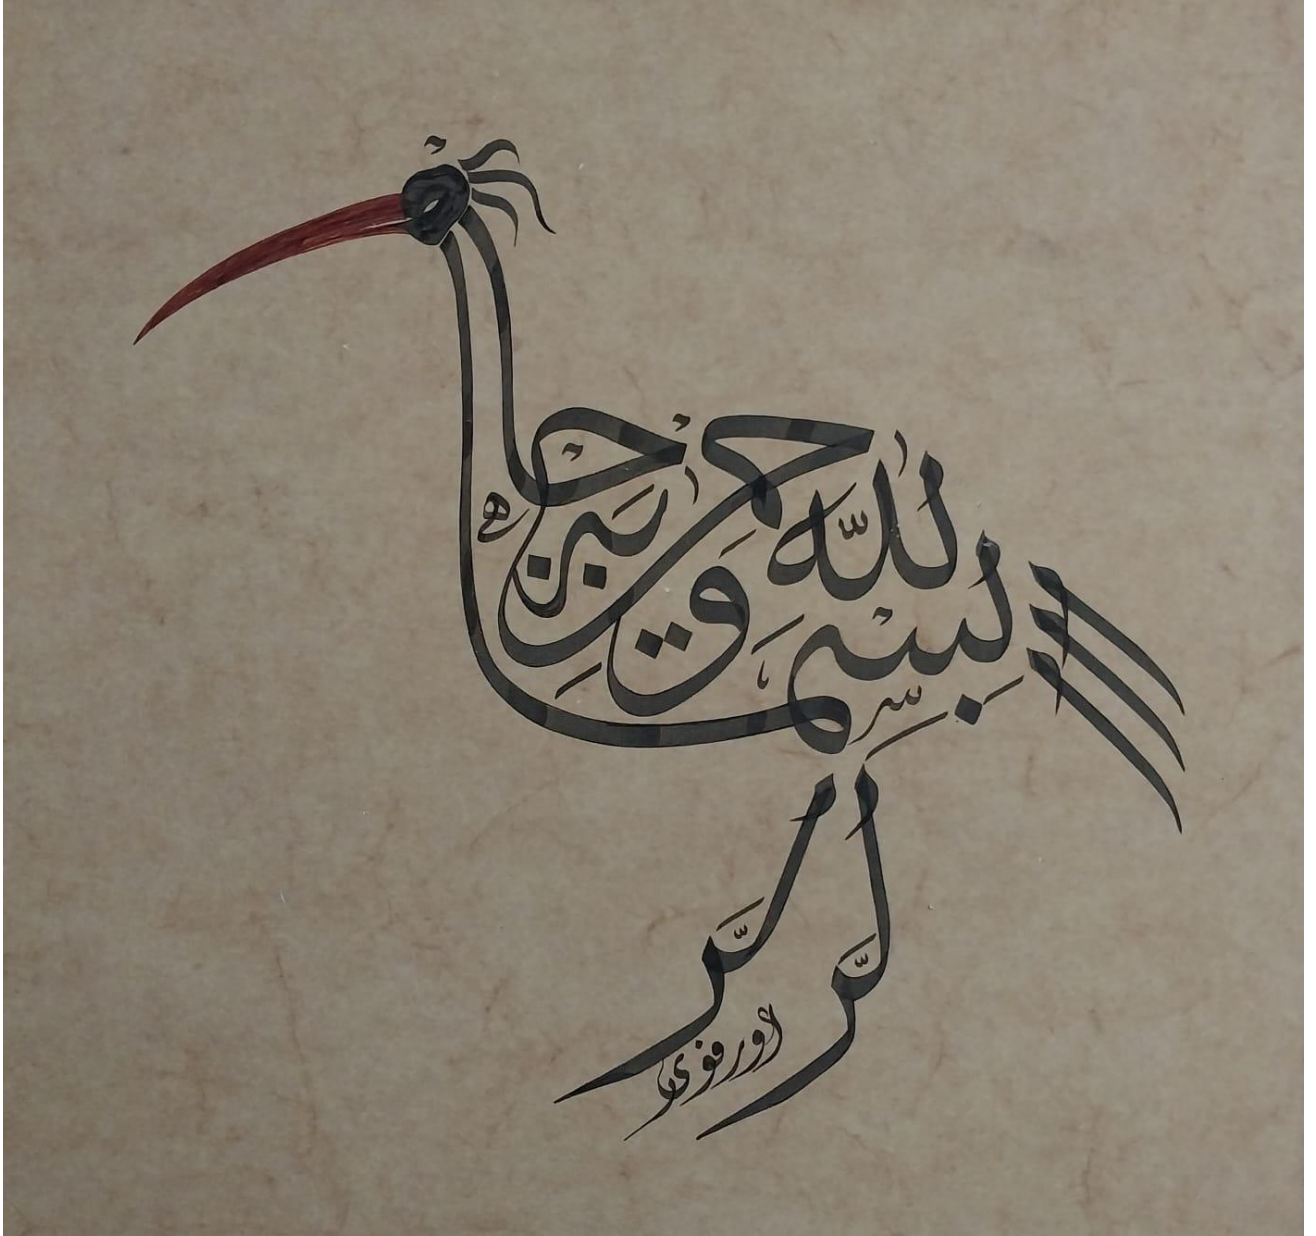 بسم الله الرحمن الرحيم
اورفوى